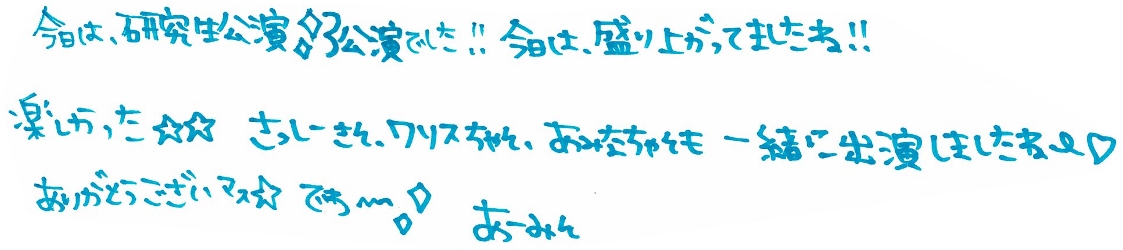 今日は、研究生公演 3公演でした!! 今日は、盛り上がってましたね!!
楽しかった☆☆ さっしーさん、クリスちゃん、あみなちゃんも 一緒に出演しましたね♡
ありがとうございマス☆ でわ〜
あーみん